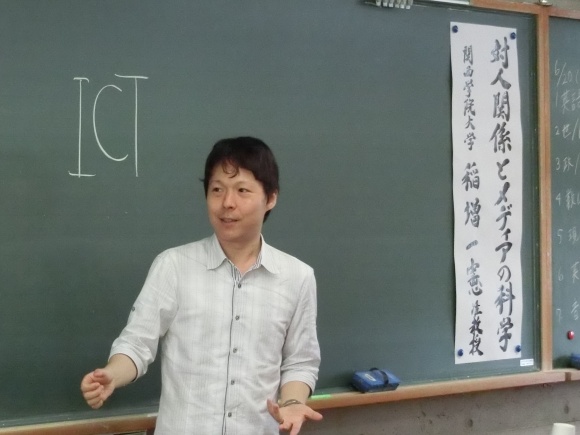 ICT
対人関係とメディアの科学
関西学院大学 稲増一憲 准教授
6/20
1 英
2 世
3
4
5 現
6 英
7